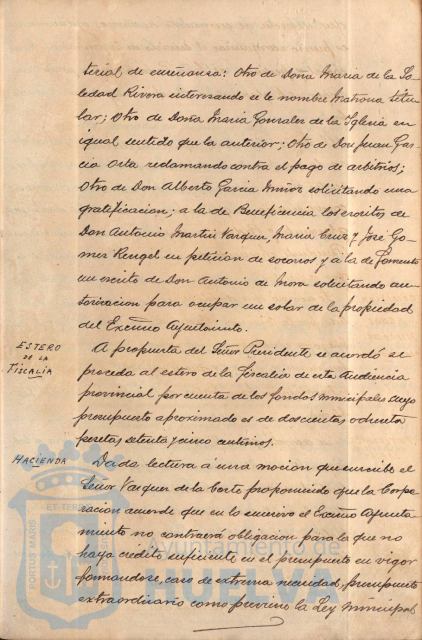 terial de enseñanza: Otro de Doña Maria de la So-
ledad Rivera interesando se le nombre Matrona titu-
lar; Otro de Doña Maria Gonzalez de la Iglesia en
igual sentido que la anterior; Otro de Don Juan Gar-
cia Orta reclamando contra el pago de arbitrios;
Otro de Don Alberto Garcia Muñoz solicitando una
gratificacion; a la de Beneficencia los escritos de
Don Antonio Martin Vazquez, Maria Cruz y José Go-
mez Rengel en peticion de socorros y á la de Fomento
un escrito de Don Antonio de Mora solicitando au-
torizacion para ocupar un solar de la propiedad
del Excmo Ayuntamiento.
ESTERO
DE LA
FISCALÍA
A propuesta del Señor Presidente se acordó se
proceda al estero de la Fiscalia de esta Audiencia
provincial por cuenta de los fondos municipales cuyo
presupuesto aproximado es de doscientas ochenta
pesetas setenta y cinco centimos.
HACIENDA
Dada lectura á una mocion que suscribe el
Señor Vazquez de la Corte proponiendo que la Corpo-
racion acuerde que en lo sucesivo el Excmo Ayunta-
miento no contraerá obligacion para la que no
haya credito suficiente en el presupuesto en vigor
formandose, caso de extrema necesidad, presupuesto
extraordinario como previene la Ley Municipal
PORTUS MARIS ET TERRAE
Ayuntamiento de
HUELVA